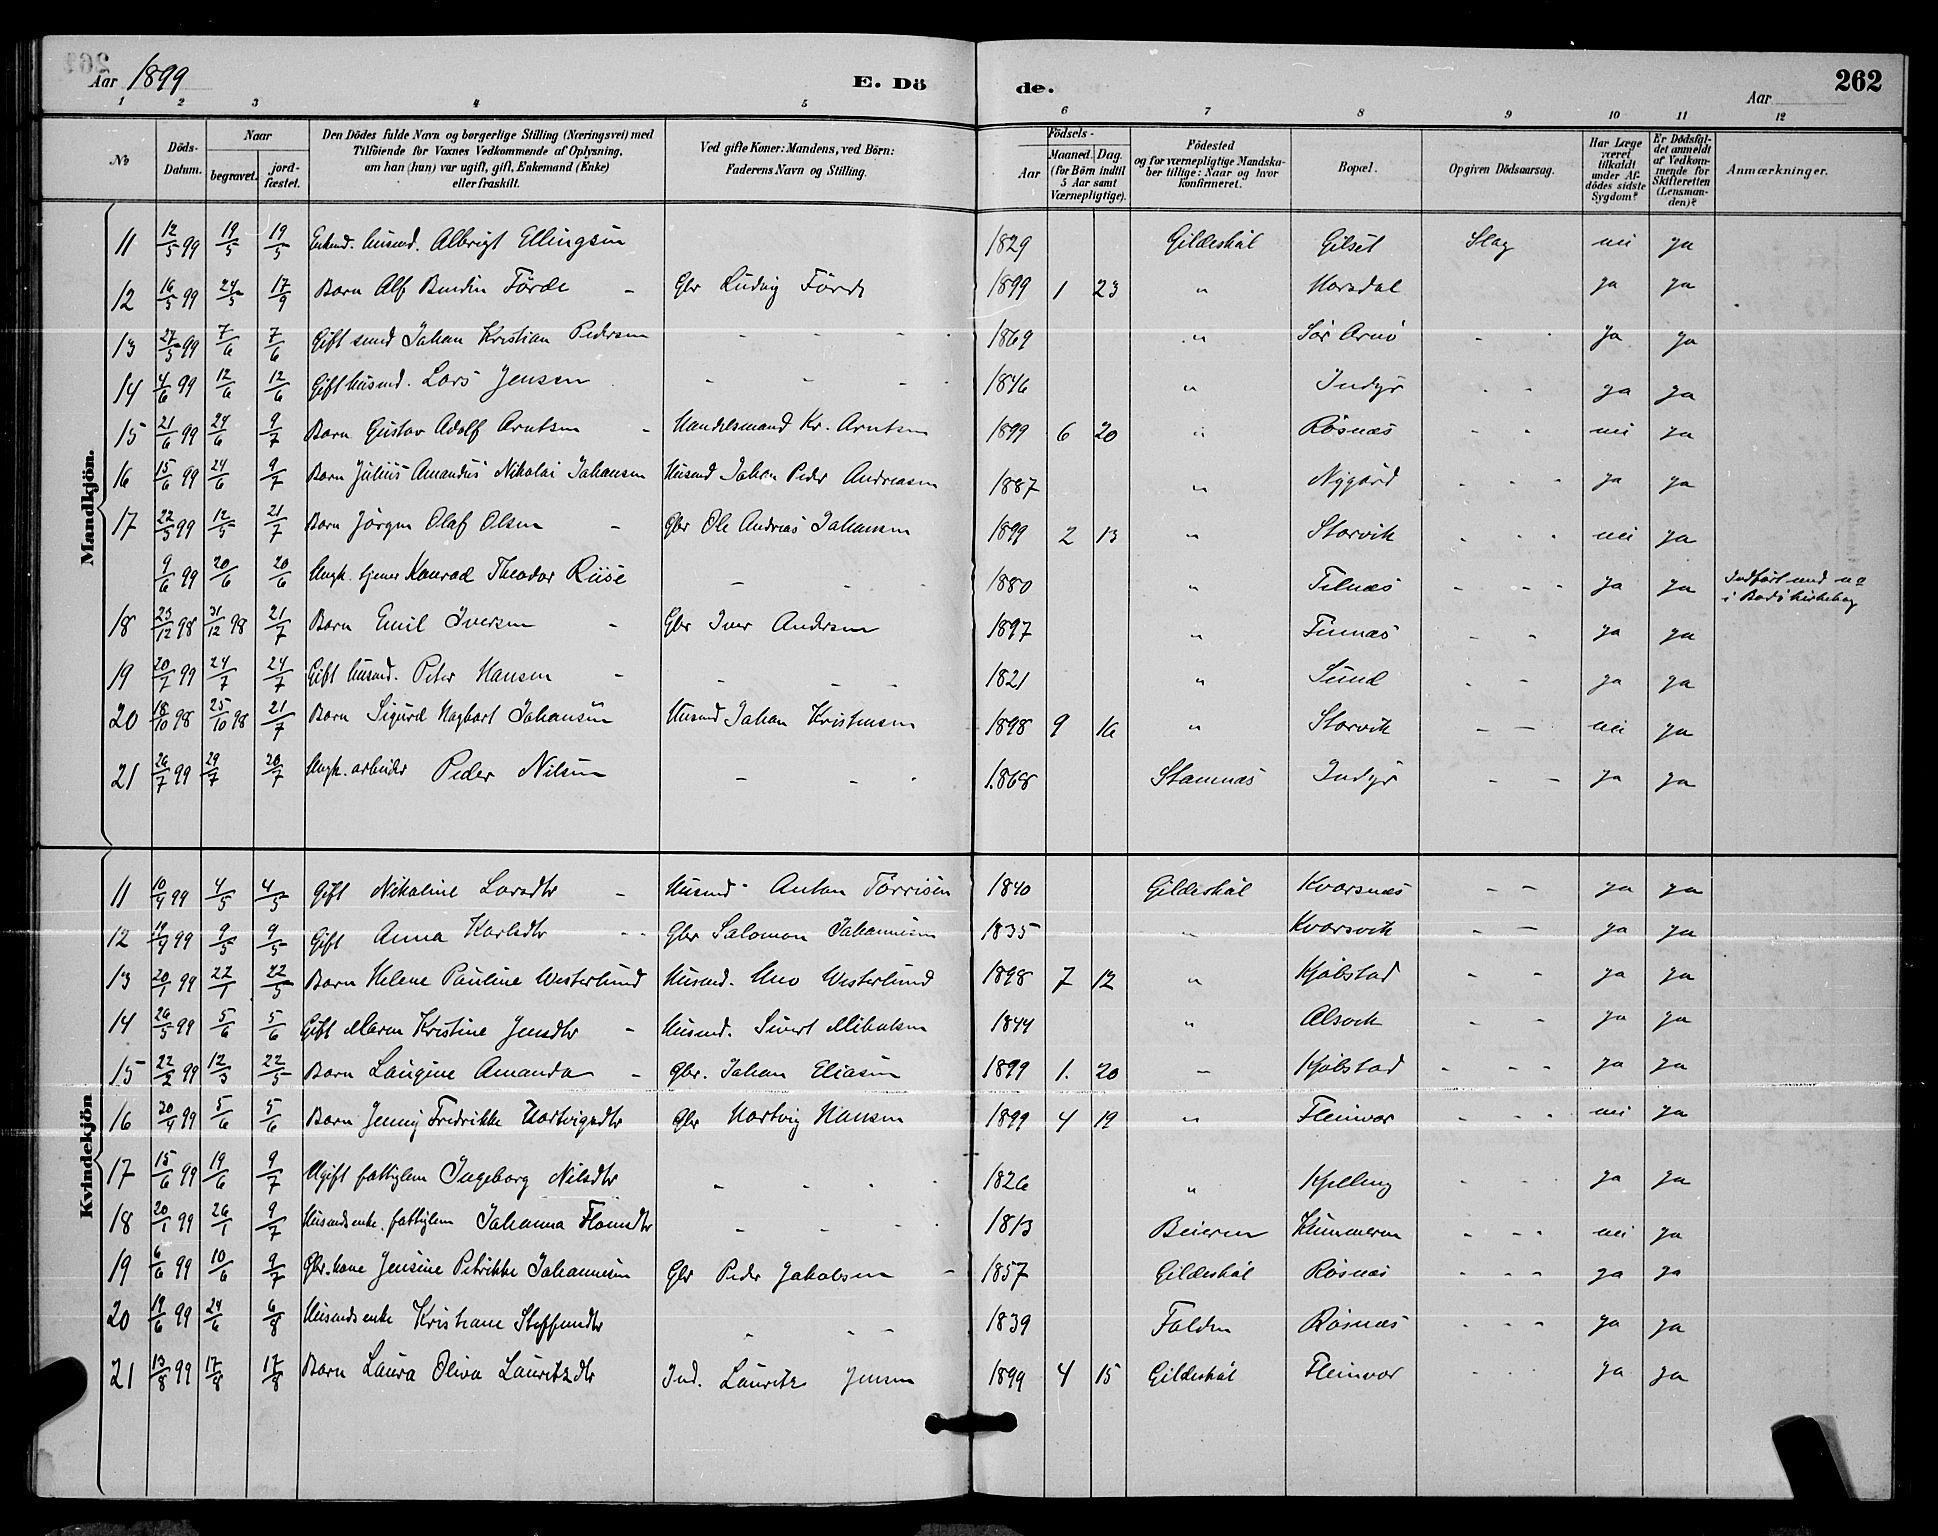 Aar 1899 E. Dö de. Aar 262
1 2 3 4 5 6 7 8 9 10 11 12
No Döds-Datum. Naar begravet. jordfæstet. Den Dödes fulde Navn og borgerlige Stilling (Næringsvei) med Tilföiende for Voxnes Vedkommende af Oplysning, om han (hun) var ugift, gift, Enkemand (Enke) eller fraskilt. Ved gifte Koner: Mandens, ved Börn: Faderens Navn og Stilling. Födsels- Aar Maaned. Dag. (for Börn indtil 5 Aar samt Værnepligtige). Födested og for værnepligtige Mandskaber tillige: Naar og hvor konfirmeret. Bopæl. Opgiven Dödsaarsag. Har Læge været tilkaldt under Afdödes sidste Sygdom? Er Dödsfaldet anmeldt af Vedkommende for Skifteretten (Lensmanden)? Anmærkninger.
Mandkjön.
11 12/5 99 19/5 19/5 Enkmd. husmd. Albrigt Ellingsen 1829 Gildeskål Gilset Slag nei ja
12 16/5 99 24/5 17/9 Barn Alf Bendin Førde - Gbr Ludvig Förde 1899 1 23 " Horsdal ja ja
13 27/5 99 7/6 7/6 Gift Johan Kristian Pedersen - - - 1869 " Sör Arnö - - ja ja
14 4/6 99 12/6 12/6 Gift husmd. Lars Jensen - - - 1846 " Indyr - - ja ja
15 21/6 99 24/6 9/7 Barn Gustav Adolf Arntsen - Handelsmand Kr. Arntsen 1899 6 20 " Røsnæs - - nei ja
16 15/6 99 24/6 9/7 Barn Julius Amandus Nikolai Johansen Husmd Johan Peder Andreasen 1887 " Nygård - - - ja ja
17 22/5 99 12/5 21/7 Barn Jørgen Olaf Olsen - Gbr Ole Andreas Johansen 1899 2 13 " Storvik - - - nei ja
9/6 99 20/6 20/6 Ungk. tjener Konrad Theodor Riise - - 1880 " - - - ja ja Indført med no i Bodö kirkebog
18 23/12 98 31/12 98 21/7 Barn Emil Iversen - Gbr Iver Andersen 1897 " Finnæs - - ja ja
19 20/7 99 24/7 24/7 Gift husmd. Peter Hansen - - - - 1821 " Sund - - ja ja
20 18/10 98 25/10 98 21/7 Barn Sigurd Hagbart Johansen Husmd Johan Kristensen 1898 9 16 " Storvik - - nei ja
21 26/7 99 29/7 20/7 Ungk. arbeider Peder Nilsen - - - 1868 Stamnæs Indyr - - ja ja
Kvindekjön
11 10/4 99 4/5 4/5 Gift Nikoline Larsdtr - Husmd Anton Torrisen 1840 Gildeskål Kvarsnæs - - ja ja
12 99 9/5 9/5 Gift Anna Karlsdtr - - Gbr Salomon Johannesen 1835 " Kvarsvik - - ja ja
13 20/1 99 22/1 22/5 Barn Helene Pauline Westerlund Husmd. Uno Westerlund 1898 7 12 " Kjølstad - - ja ja
14 26/5 99 5/6 5/6 Gift Maren Kristine Jensdtr - Husmd. Sivert Mikalsen 1844 " Alsvik - - ja ja
15 22/2 99 12/3 22/5 Barn Laugine Amanda - Gbr. Johan Eliasen 1899 1. 20 - Kjølstad - - - ja ja
16 30/4 99 5/6 5/6 Barn Jenny Fredrikke Hartvigsdtr Gbr Hartvig Hansen 1899 4 19 " Fleinvær - - - nei ja
17 15/6 99 19/6 9/7 Ugift fattiglem Ingeborg Nilsdtr - - - 1826 " Kjelling - - - ja ja
18 20/1 99 26/1 9/7 Husmdsenke. fattiglem Johanna - - - 1813 Beieren - - - nei ja
19 6/6 99 10/6 9/7 Gbr. kone Jensine Petrikke Johannesen Gbr Peder Jakobsen - 1857 Gildeskål Røsnæs - - - ja ja
20 19/6 99 24/6 6/8 Husmdsenke Kristiane Steffensdtr - - - 1839 Folden Røsnæs - - - ja ja
21 13/8 99 17/8 17/8 Barn Laura Oliva Lauritzdtr Ind. Lauritz Jensen 1899 4 15 Gildeskål Fleinvær - - ja ja